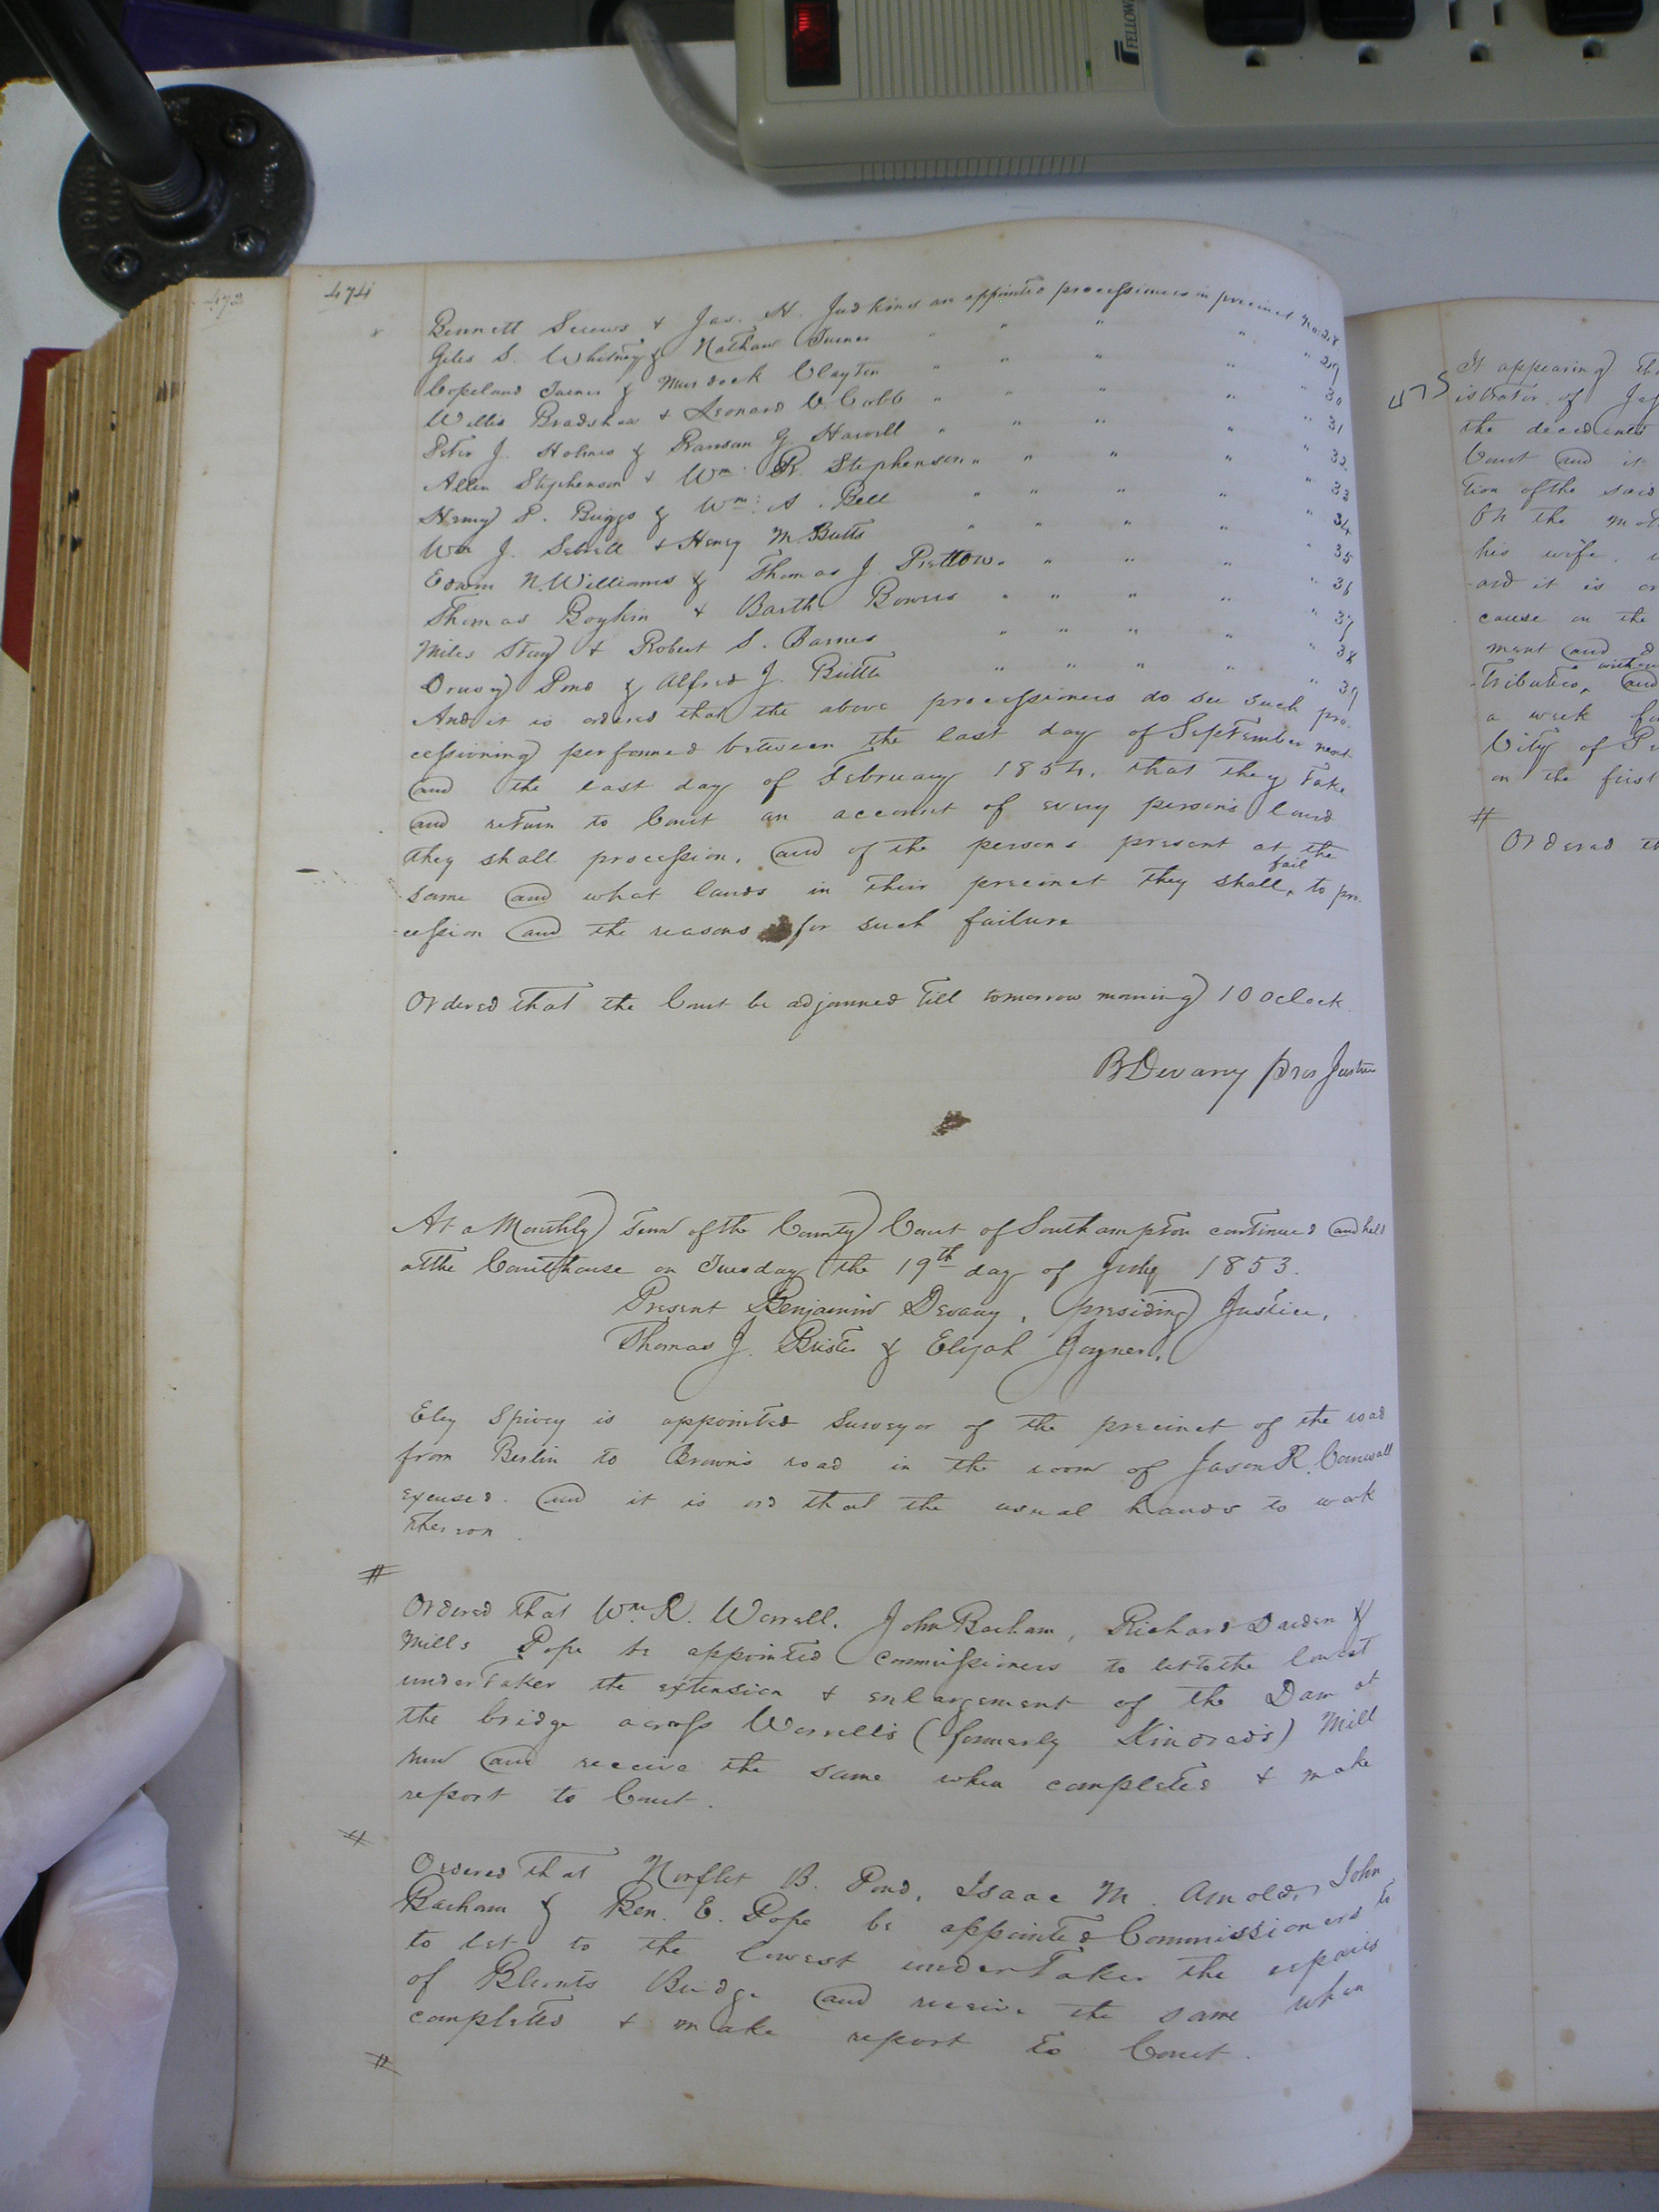 FELLOWE
472
474
Bennett Screws & Jas. H. Judkins are appointed processioners in precinct No. 28
Giles S. Whitney & Nathan Turner " " " " " 29
Copeland Turner & Murdock Clayton " " " " " 30
Willis Bradshaw & Leonard C. Cobb " " " " " 31
Peter J. Holmes & Ransom G. Harvill " " " " " 32
Allen Stephenson & Wm. R. Stephenson " " " " " 33
Henry P. Briggs & Wm: A. Bell " " " " " 34
Wm J. Sebrell & Henry M. Butts " " " " " 35
Edwin N. Williams & Thomas J. Pretlow " " " " 36
Thomas Boykin & Barth. Bowers " " " " " 37
Miles & Robert S. Barnes " " " " " 38
Drury Pond & Alfred J. Butts " " " " " 39
And it is ordered that the above processioners do see such pro-
cessioning performed between the last day of September next
and the last day of February 1854, that they take
and return to Court an account of every person's land
they shall procession, and of the persons present at the
same and what lands in their precinct they shall fail to pro-
-cession and the reasons for such failure
Ordered that the Court be adjourned till tomorrow morning 10 oclock.
B Devany pres Justice
At a Monthly term of the County Court of Southampton continued and held
at the Courthouse on Tuesday the 19th day of July 1853.
Present Benjamin Devany, presiding Justice,
Thomas J. Brister & Elijah Joyner.
Eley Spivey is appointed Surveyor of the precinct of the road
from Berlin to Browns road in the room of Jason R. Cornwall
excused. and it is ord that the usual hands to work
thereon.
#
Ordered that Wm. R. Worrell, John Barham, Richard Darden &
Mills Pope be appointed commissioners to let to the lowest
undertaker the extension & enlargement of the Dam at
the bridge across Worrell's (formerly Kindred's) Mill
run and receive the same when completed & make
report to Court.
#
Ordered that Norflet B. Pond, Isaac M. Arnold, John
Barham & Ben. E. Pope be appointed Commissioners to
to let to the lowest undertaker the repairs
of Blunts Bridge and receive the same when
completed & make report to Court.
#
475
It appearing
istrator of
the decedents
Court and it
tion of the said
On the
his wife
and it is
cause on the
ment and
tributes, and
a week
City of
on the first
#
Ordered